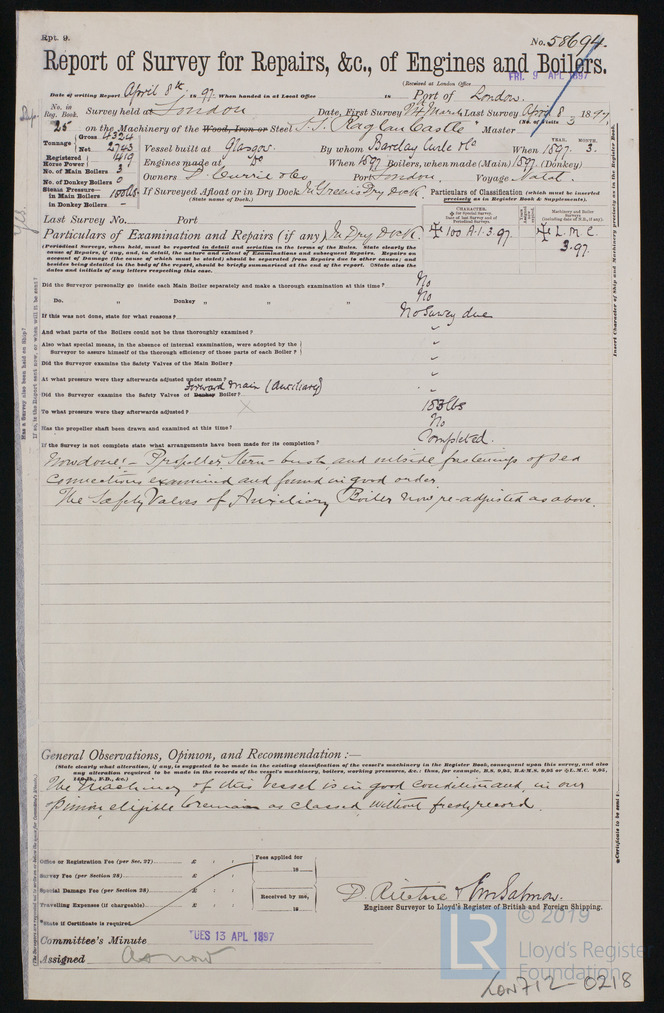 Rpt. 9.
No. 58694.
Report of Survey for Repairs, &c., of Engines and Boilers.
(Received at London Office FRI. 9 APL 1897
Date of writing Report April 8th 1897 When handed in at Local Office 18 Port of London.
No. in Reg. Book. Survey held at London Date, First Survey Last Survey April 8 1897
(No. of Visits 3)
25 on the Machinery of the Wood, Iron or Steel S.S. "Raglan Castle" Master
Tonnage Gross 4324 Net 2743 Vessel built at Glasgow. By whom Barclay Curle & Co When 1897. YEAR. MONTH. 3.
Registered Horse Power 419 Engines made at Do When 1897 Boilers, when made (Main) 1897 (Donkey)
No. of Main Boilers 3
No. of Donkey Boilers 0 Owners D. Currie & Co Port London. Voyage Natal.
Steam Pressure— in Main Boilers in Donkey Boilers – If Surveyed Afloat or in Dry Dock In Greens Dry Dock.
(State name of Dock.)
Particulars of Classification (which must be inserted precisely as in Register Book & Supplements).
Last Survey No. Port
CHARACTER. ✠ for Special Survey. Date of last Survey and of Periodical Surveys.
Machinery and Boilers Surveys (including date of N.B., if any).
✠ 100 A.1. 3.97 ✠ L.M.C. 3.97
Particulars of Examination and Repairs (if any) In Dry Dock.
(Periodical Surveys, when held, must be reported in detail and seriatim in the terms of the Rules. State clearly the
cause of Repairs, if any, and, in detail, the nature and extent of Examinations and subsequent Repairs. Repairs on
account of Damage (the cause of which must be stated) should be separated from Repairs due to other causes; and
besides being detailed in the body of the report, should be briefly summarised at the end of the report. State also the
dates and initials of any letters respecting this case.
Did the Surveyor personally go inside each Main Boiler separately and make a thorough examination at this time? No
Do. " Donkey " " " ? No
If this was not done, state for what reasons? No Survey due
And what parts of the Boilers could not be thus thoroughly examined?
Also what special means, in the absence of internal examination, were adopted by the
Surveyor to assure himself of the thorough efficiency of those parts of each Boiler?
Did the Surveyor examine the Safety Valves of the Main Boiler?
At what pressure were they afterwards adjusted under steam?
Forward Main (Auxiliary)
Did the Surveyor examine the Safety Valves of Donkey Boiler?
To what pressure were they afterwards adjusted?
Has the propeller shaft been drawn and examined at this time? No
If the Survey is not complete state what arrangements have been made for its completion? Completed.
Now done:– Propeller Stern-bush and outside fastenings of sea
connections examined and found in good order.
The Safety Valves of Auxiliary Boiler now re-adjusted as above.
General Observations, Opinion, and Recommendation :—
(State clearly what alteration, if any, is suggested to be made in the existing classification of the vessel's machinery in the Register Book, consequent upon this survey, and also
any alteration required to be made in the records of the vessel's machinery, boilers, working pressures, &c.; thus, for example, B.S. 9,95, B.&M.S. 9,95 or ✠L.M.C. 9,95,
140 lb., F.D., &c.)
The Machinery of this Vessel is in good condition and, in our
opinion, eligible to remain as classed, without fresh record.
Office or Registration Fee (per Sec. 27) £ : :
Survey Fee (per Section 28) £ : :
Special Damage Fee (per Section 28) £ : :
Travelling Expenses (if chargeable) £ : :
Fees applied for 18
Received by me, 18
*State if Certificate is required
D. Ritchie & Wm Salmon.
Engineer Surveyor to Lloyd's Register of British and Foreign Shipping.
Committee's Minute TUES 13 APL 1897
Assigned As now
© 2019
LR
Lloyd's Register
Foundation
LON712-0218